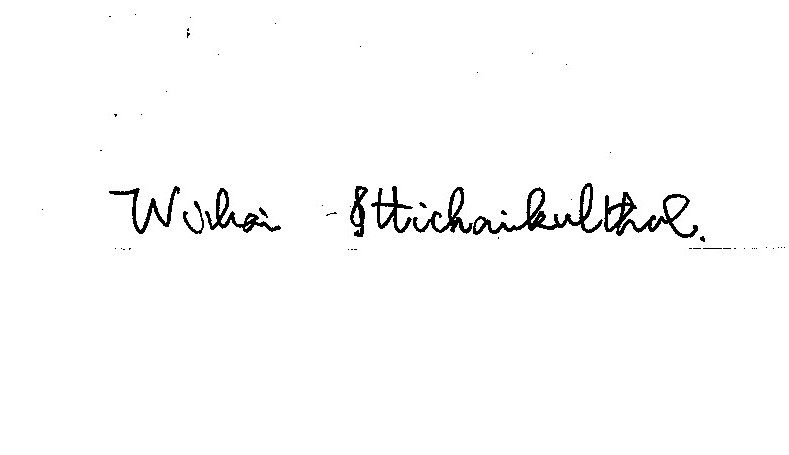 Wichai Ittichaikulthol.